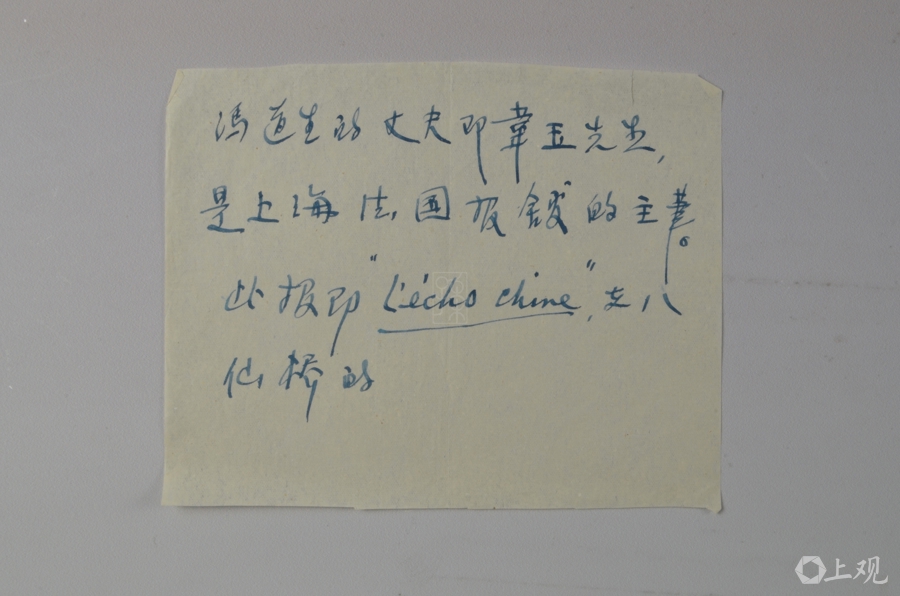 馮道生的丈夫即韋玉先生,
是上海法国报館的主筆。
此报即"L'écho chine",在八
仙桥的
上观